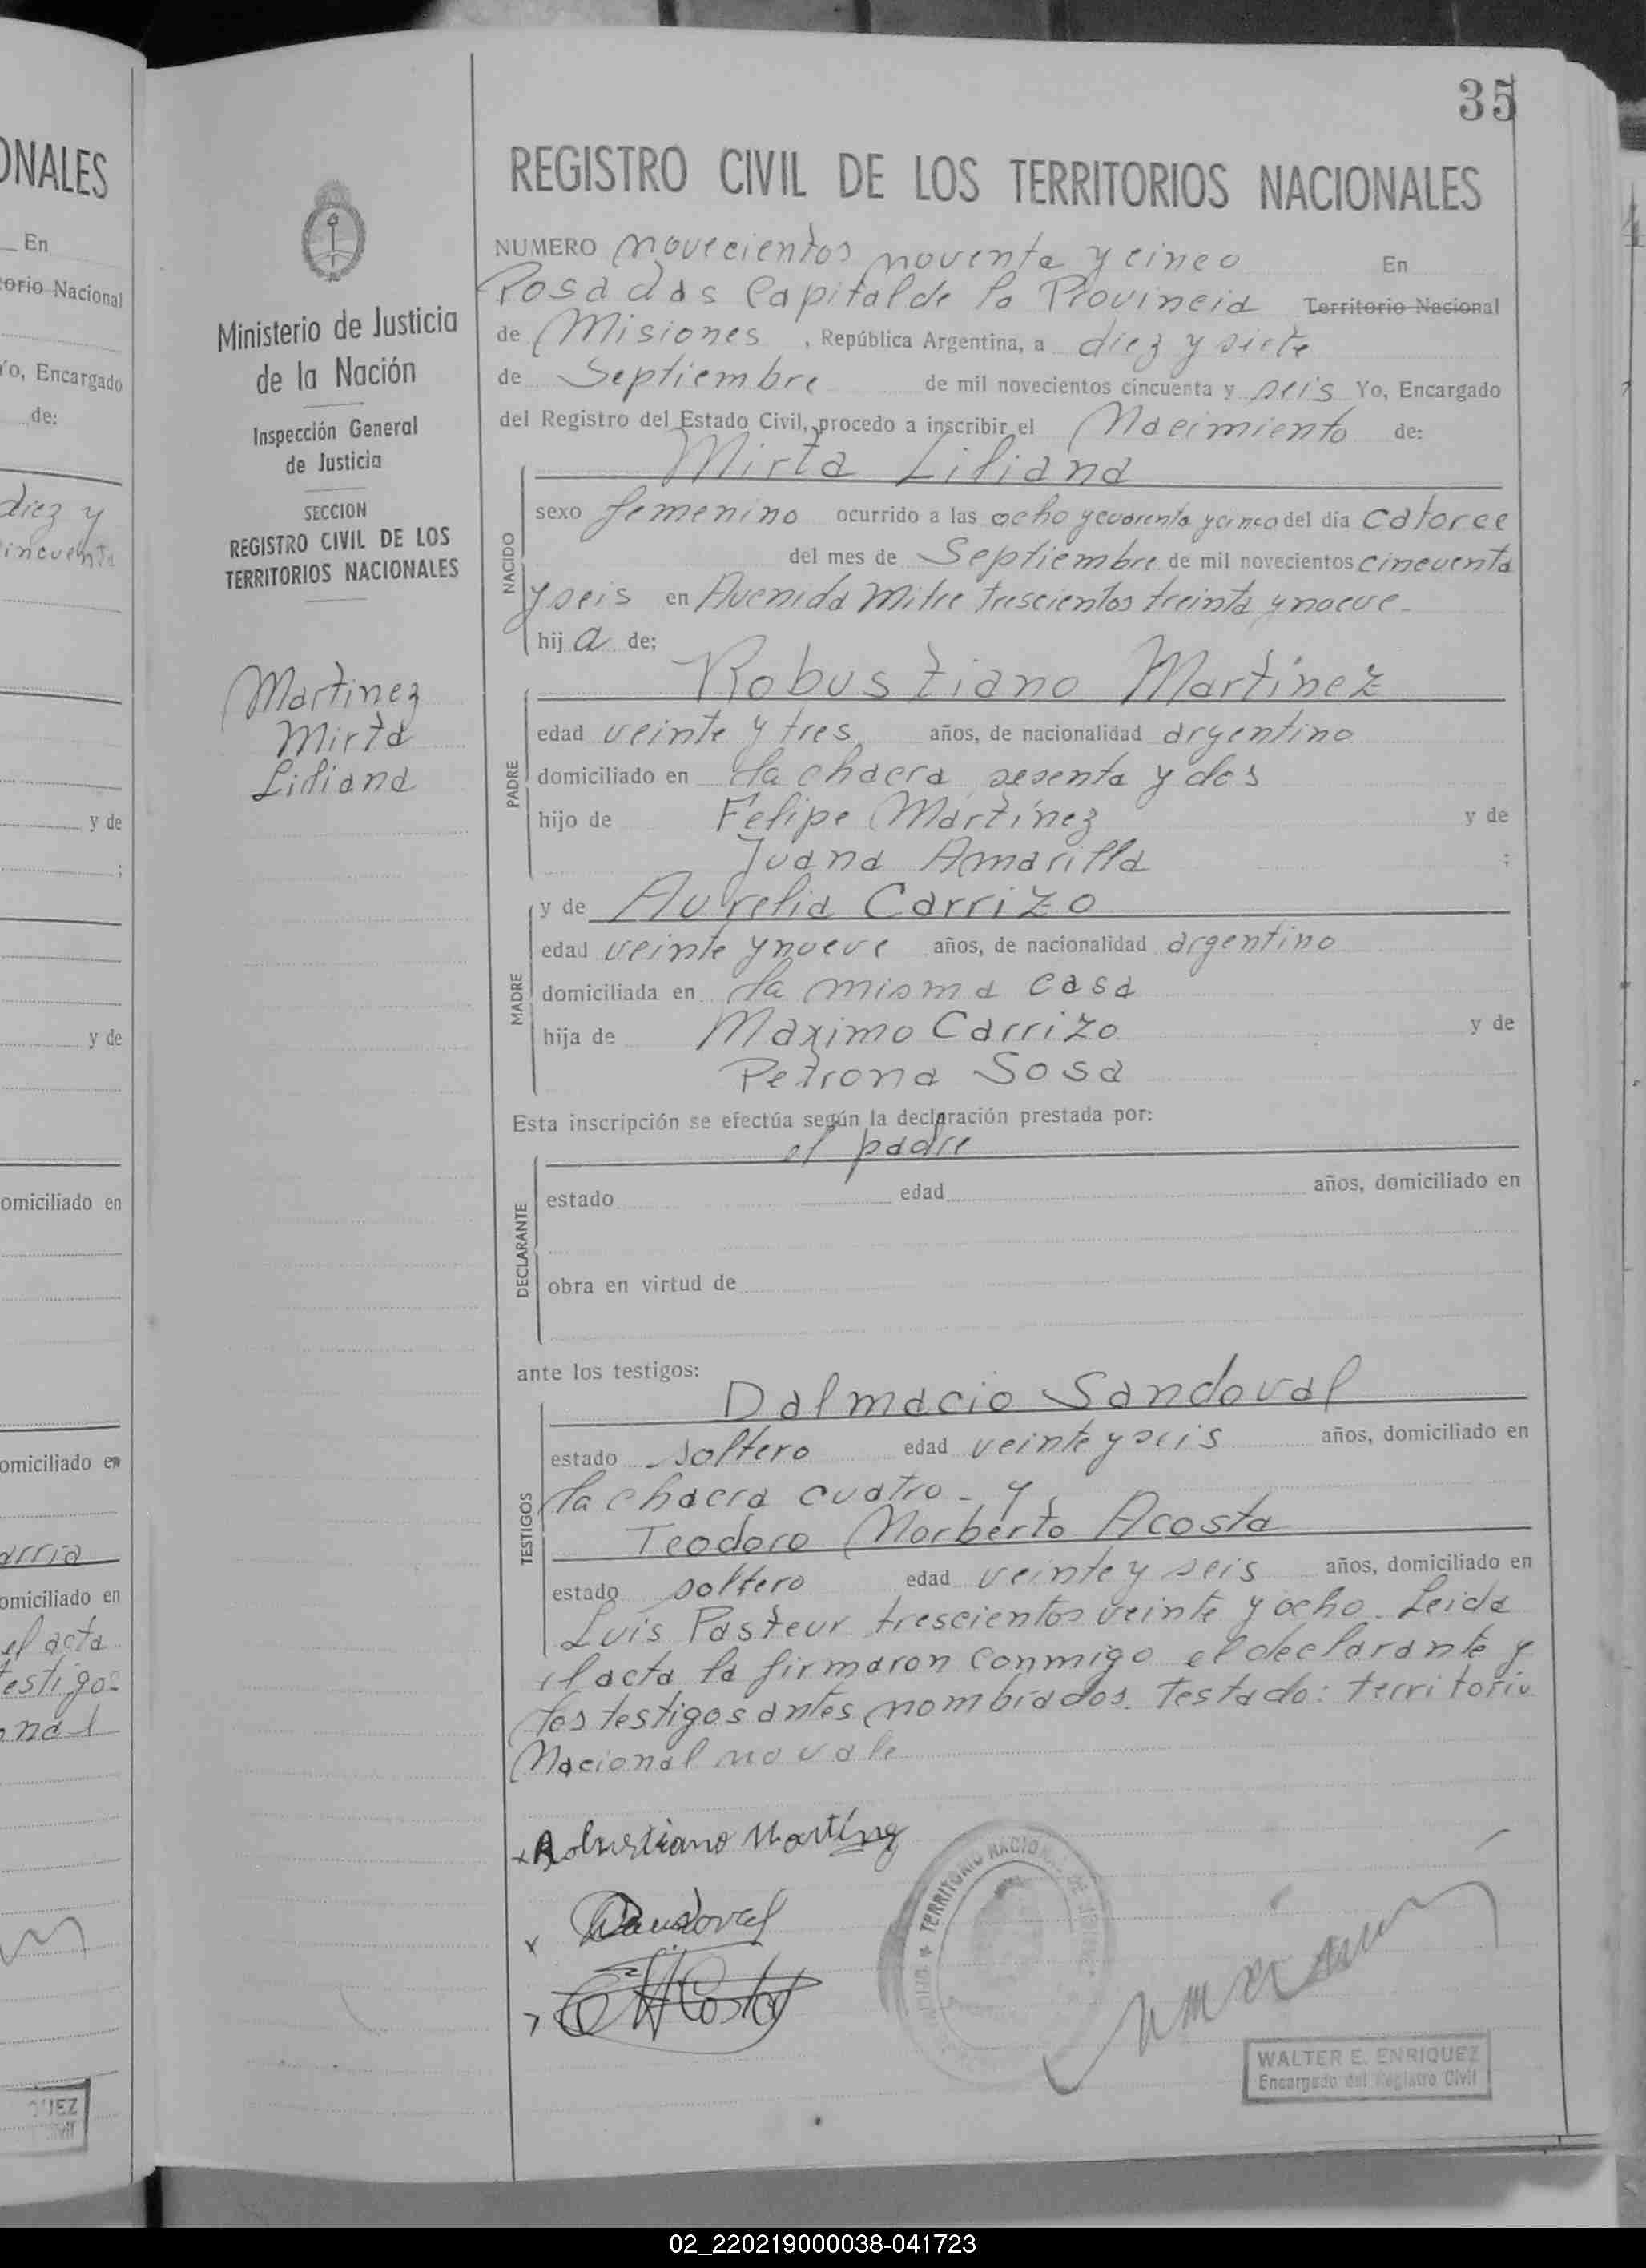 35
REGISTRO CIVIL DE LOS TERRITORIOS NACIONALES
NUMERO novecientos noventa y cinco En
Posadas Capital de la Provincia Territorio Nacional
de Misiones, República Argentina, a diez y siete
de Septiembre de mil novecientos cincuenta y seis Yo, Encargado
del Registro del Estado Civil, procedo a inscribir el Nacimiento de:
Mirta Liliana
NACIDO
sexo femenino ocurrido a las ocho y cuarenta y cinco del día catorce
del mes de Septiembre de mil novecientos cincuenta
y seis en Avenida Mitre trescientos treinta y nueve.
hij a de;
Robustiano Martinez
PADRE
edad veinte y tres años, de nacionalidad argentino
domiciliado en la chacra sesenta y dos
hijo de Felipe Martínez y de
Juana Amarilla ;
y de Aurelia Carrizo
MADRE
edad veinte y nueve años, de nacionalidad argentino
domiciliada en la misma casa
hija de Maximo Carrizo y de
Petrona Sosa
Esta inscripción se efectúa según la declaración prestada por:
el padre
DECLARANTE
estado edad años, domiciliado en
obra en virtud de
ante los testigos:
Dalmacio Sandoval
TESTIGOS
estado soltero edad veinte y seis años, domiciliado en
la chacra cuatro - y
Teodoro Norberto Acosta
estado soltero edad veinte y seis años, domiciliado en
Luis Pasteur trescientos veinte y ocho. Leida
el acta la firmaron conmigo el declarante y
los testigos antes nombrados. Testado: territorio
Nacional no vale
x Robustiano Martínez
x Sandoval
TERRITORIO NACIONAL DE MISIONES
WALTER E. ENRIQUEZ
Encargado del Registro Civil
Ministerio de Justicia
de la Nación
Inspección General
de Justicia
SECCION
REGISTRO CIVIL DE LOS
TERRITORIOS NACIONALES
Martinez
Mirta
Liliana
ONALES
En
torio Nacional
Yo, Encargado
de:
diez y
cincuenta
y de
;
y de
omiciliado en
omiciliado en
omiciliado en
el acta
testigos
nal
02_220219000038-041723